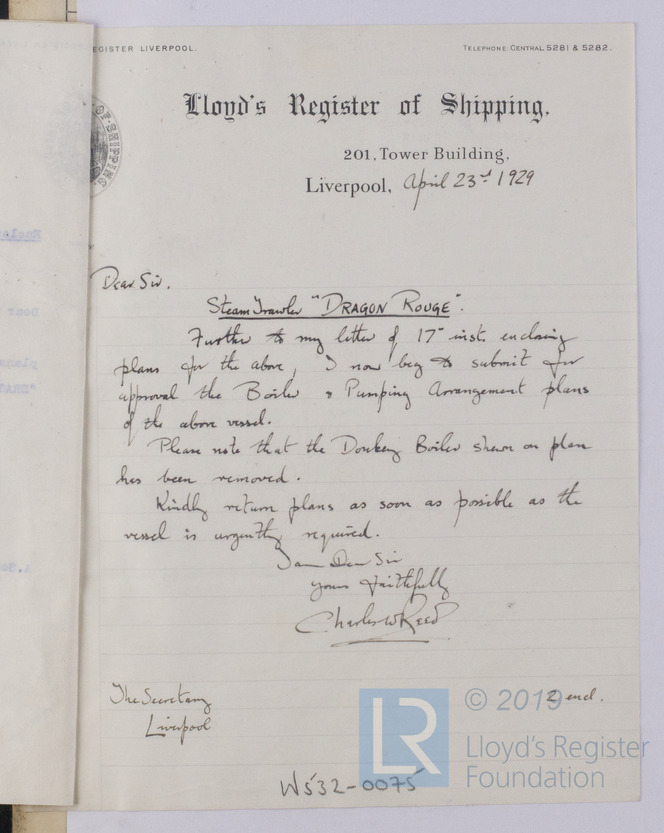 EGISTER LIVERPOOL.
TELEPHONE: CENTRAL 5281 & 5282.
Lloyd's Register of Shipping.
201, Tower Building,
Liverpool, April 23rd 1929
OF·SHIPPING
Dear Sir,
Steam Trawler "DRAGON ROUGE".
Further to my letter of 17" inst. enclosing
plans for the above, I now beg to submit for
approval the Boiler & Pumping Arrangement plans
of the above vessel.
Please note that the Donkey Boiler shewn on plan
has been removed.
Kindly return plans as soon as possible as the
vessel is urgently required.
I am Dear Sir
Yours faithfully
Charles W Reed
The Secretary
Liverpool
2 encl.
W532-0075
LR
© 2019
Lloyd's Register
Foundation